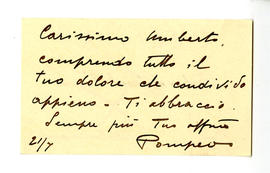 Carissimo Umberto,
comprendo tutto il
tuo dolore che condivido
appieno - Ti abbraccio.
Sempre più Tuo affmo
21/7 Pompeo